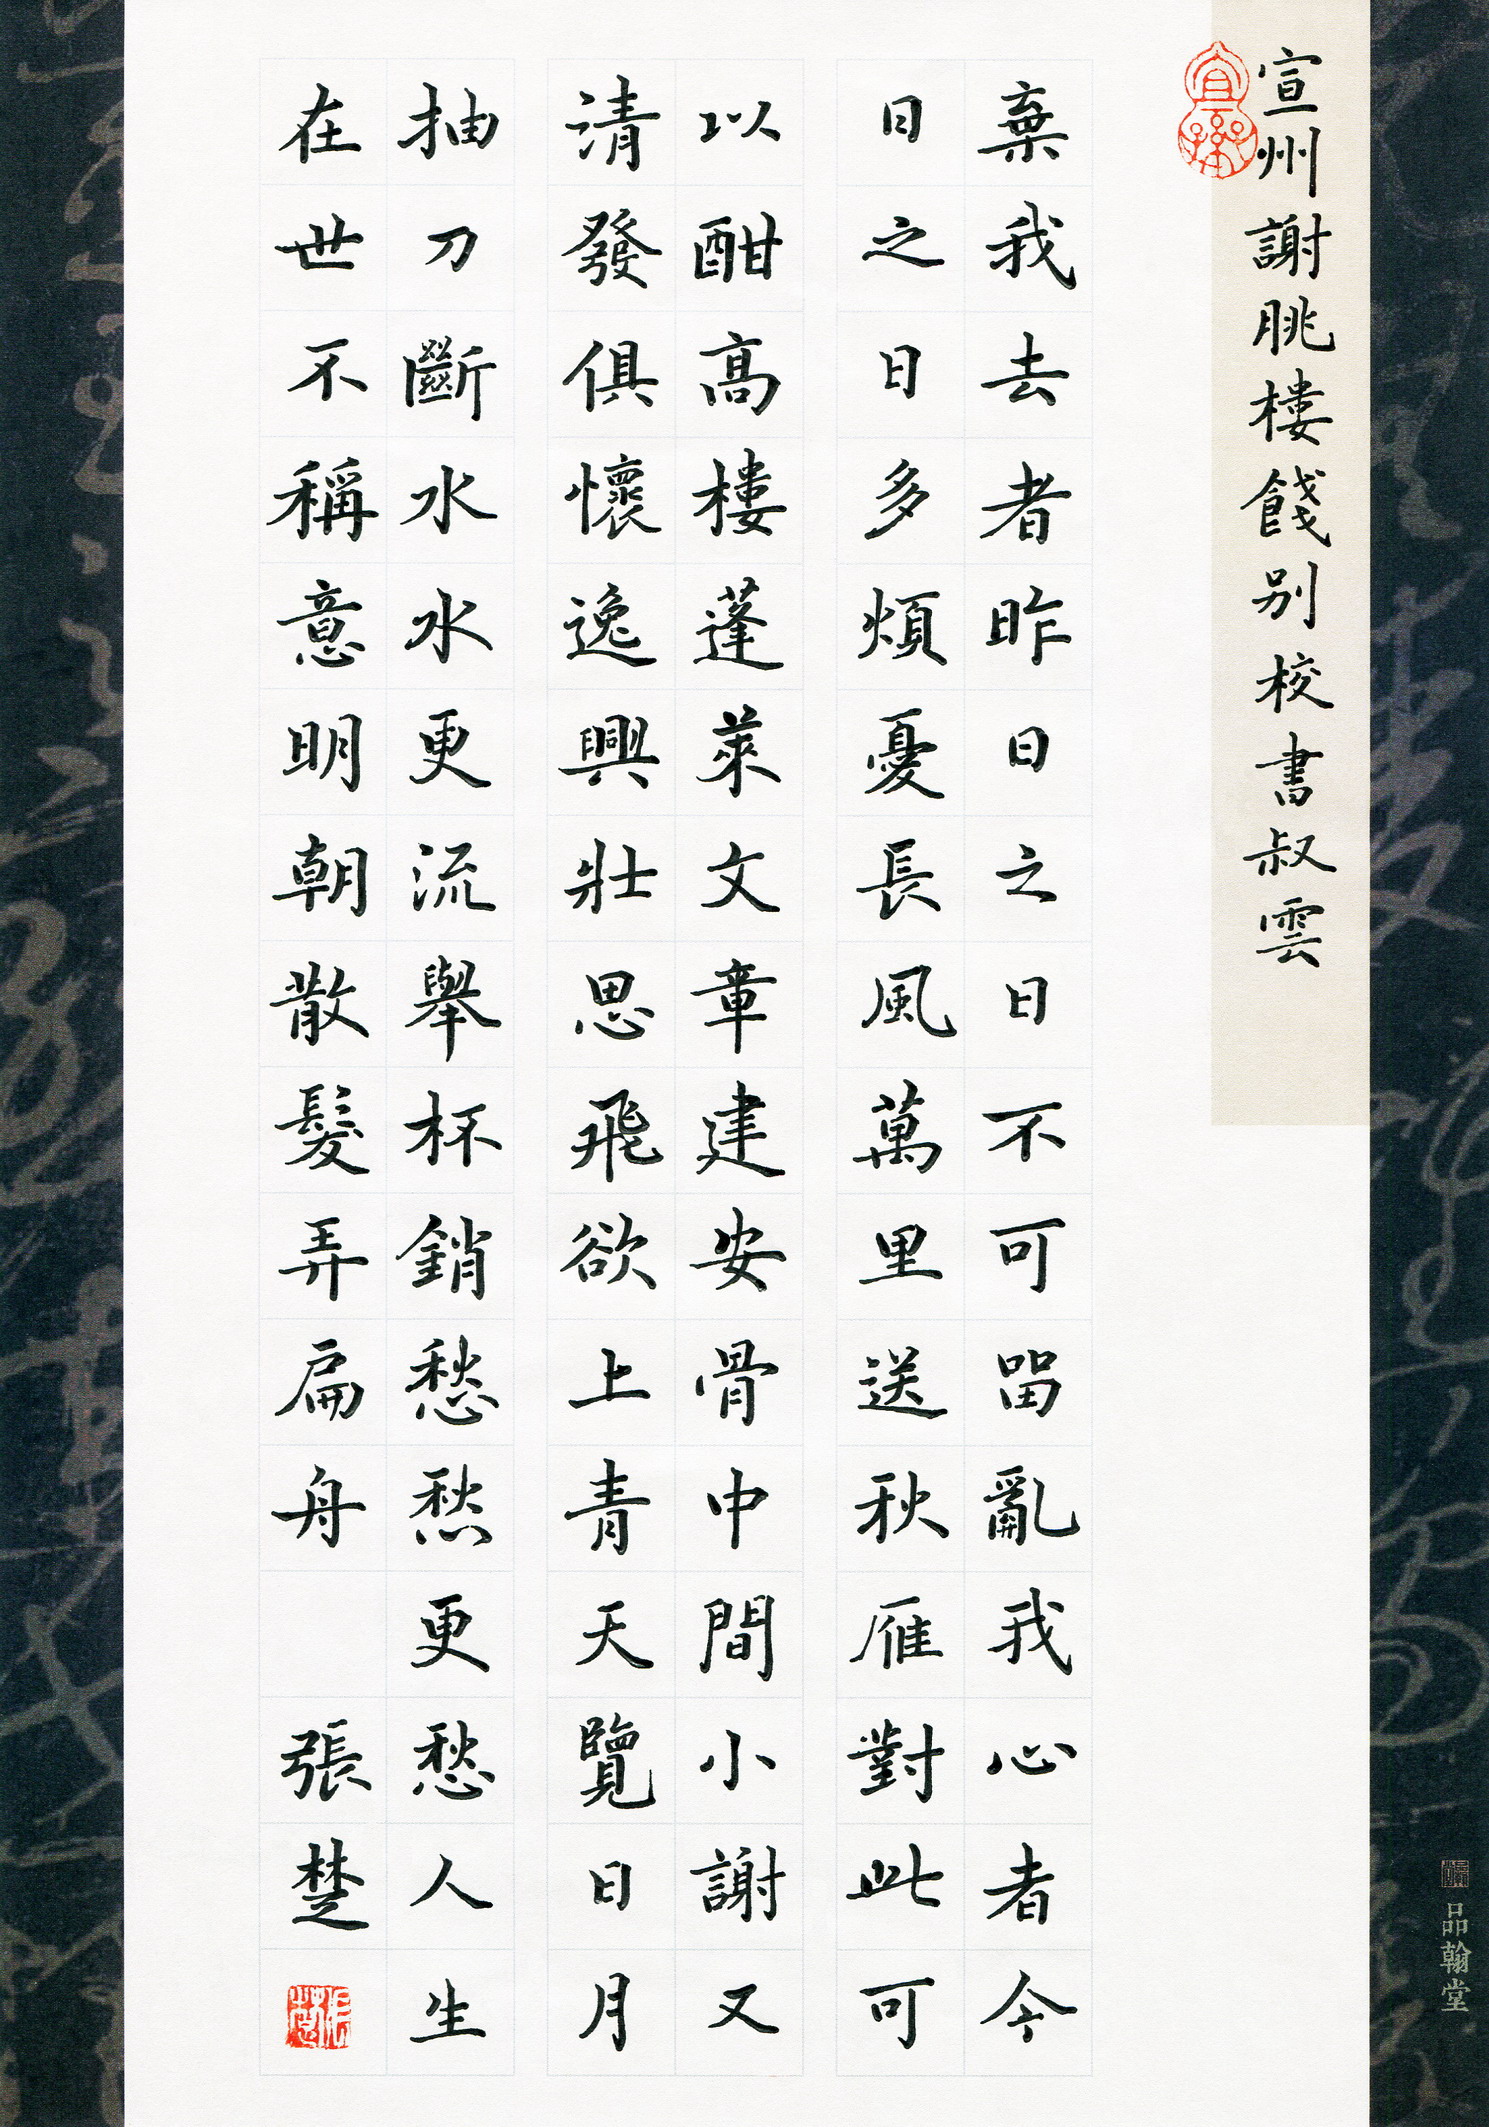 宣州謝朓樓餞别校書叔雲
棄我去者昨日之日不可留亂我心者今
日之日多煩憂長風萬里送秋雁對此可
以酣高樓蓬萊文章建安骨中間小謝又
清發俱懷逸興壯思飛欲上青天覽日月
抽刀斷水水更流舉杯銷愁愁更愁人生
在世不稱意明朝散髮弄扁舟 張楚
品翰堂